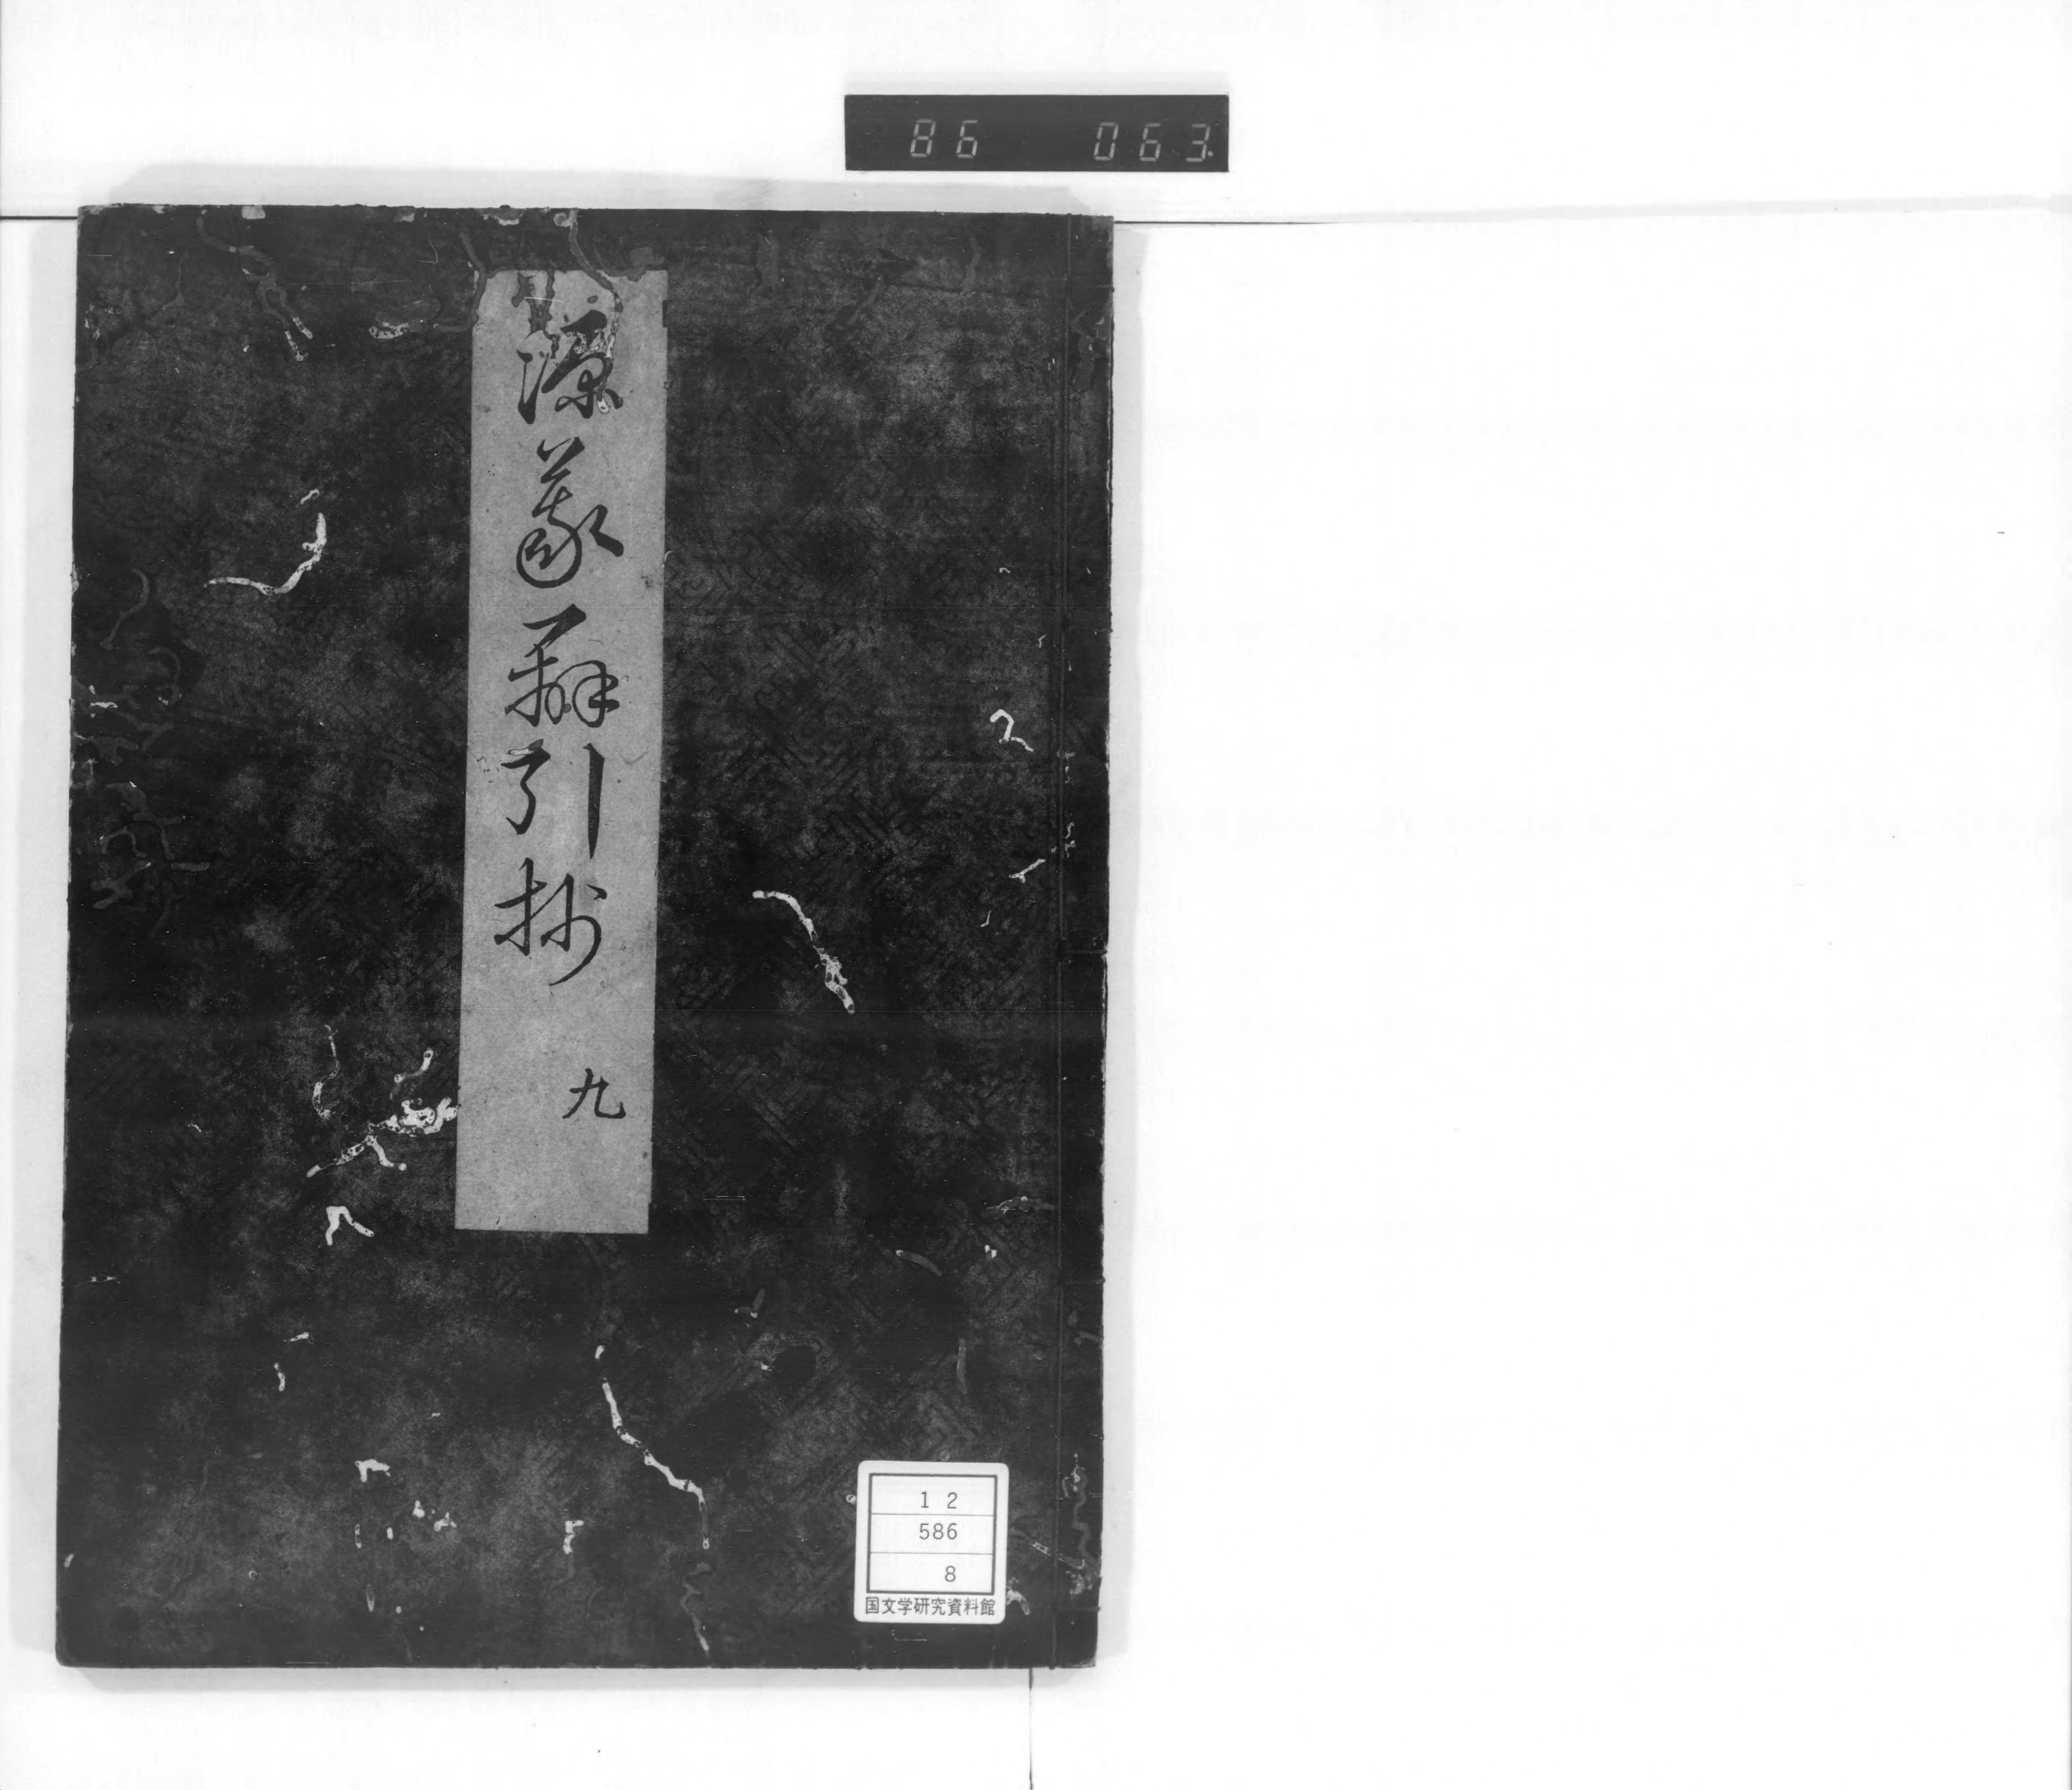 86 063
源義弁引抄
九
12
586
8
国文学研究資料館